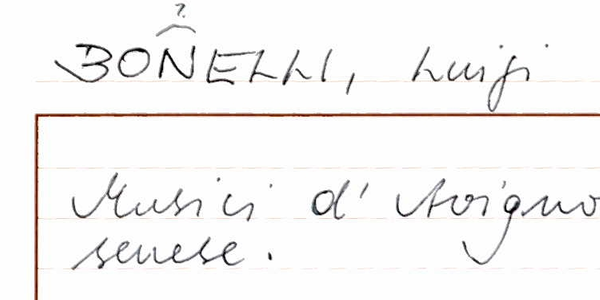 ?
BONELLI, Luigi
Musici d' Avigno
senese.